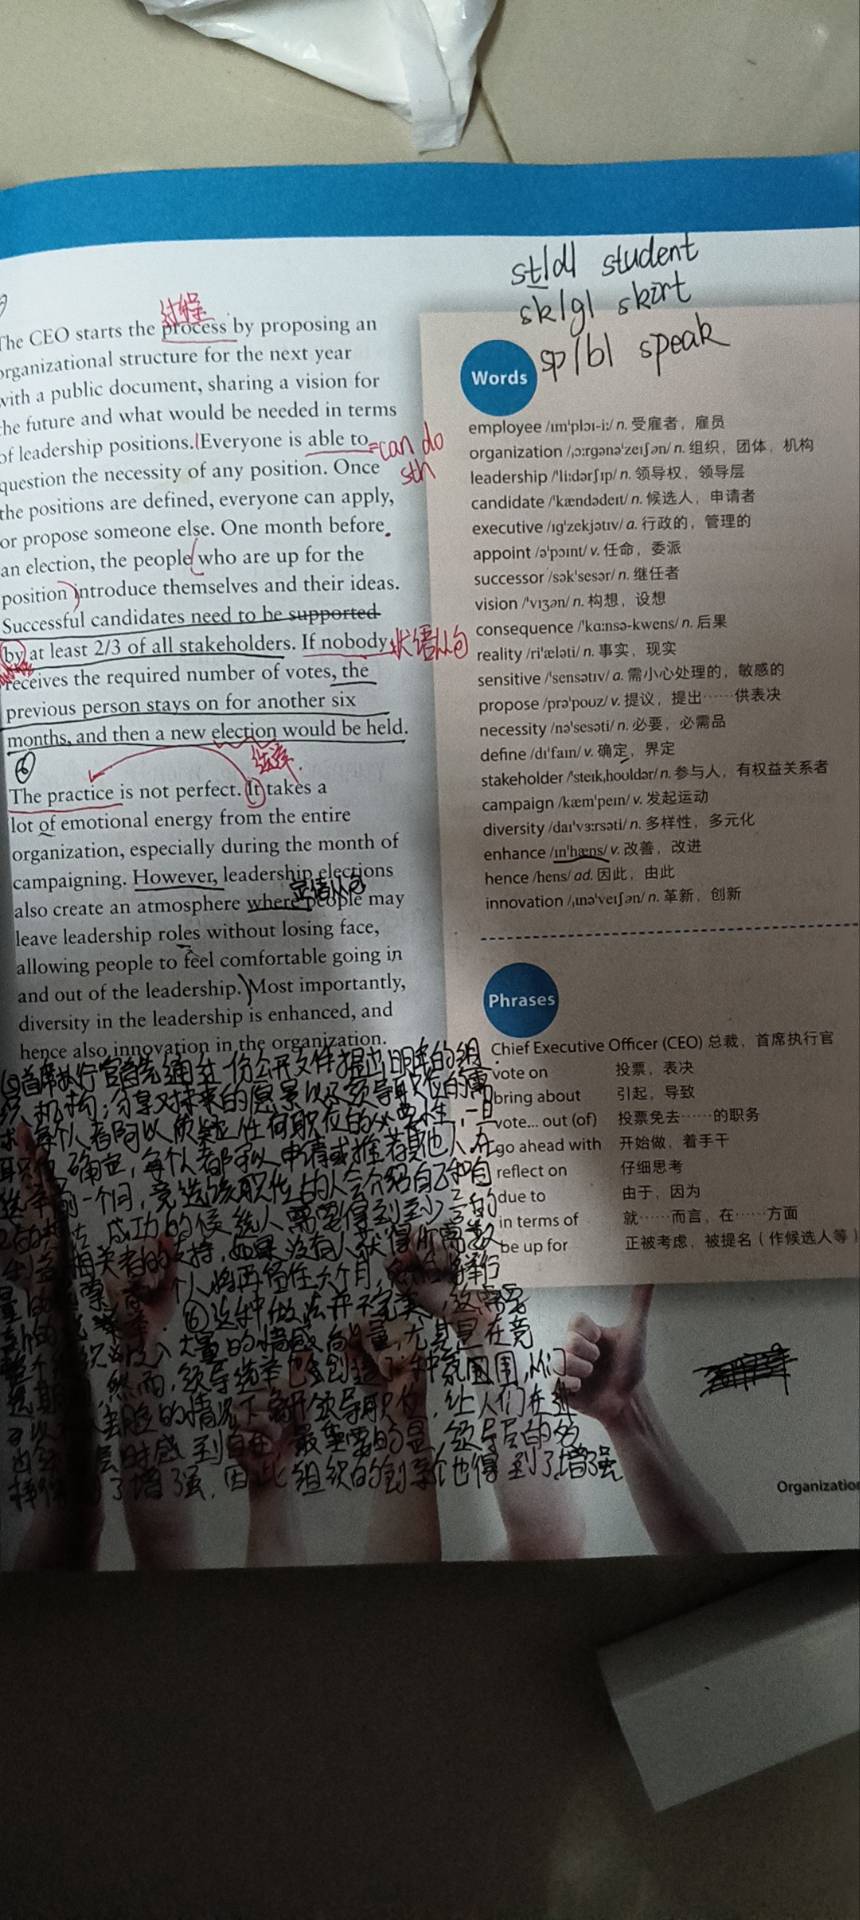 std student
sk/g/ skirt
sp/b/ speak
过程
The CEO starts the process by proposing an
organizational structure for the next year
with a public document, sharing a vision for
the future and what would be needed in terms
of leadership positions. Everyone is able to =can do
sth
question the necessity of any position. Once
the positions are defined, everyone can apply,
or propose someone else. One month before
an election, the people who are up for the
position introduce themselves and their ideas.
Successful candidates need to be supported
by at least 2/3 of all stakeholders. If nobody 状语从句
receives the required number of votes, the
previous person stays on for another six
months, and then a new election would be held.
⑥
选举
The practice is not perfect. It takes a
lot of emotional energy from the entire
organization, especially during the month of
campaigning. However, leadership elections
定语从句
also create an atmosphere where people may
leave leadership roles without losing face,
allowing people to feel comfortable going in
and out of the leadership. Most importantly,
diversity in the leadership is enhanced, and
hence also innovation in the organization.
首席执行官首先通过一份公开文件提出明年的组
织机构,分享对未来的愿景以及领导职位的需
求,每个人都可以质疑任何职位的必要性,一旦
确定,每个人都可以申请或推荐其他人,在
选举前一个月,竞选该职位的人会介绍自己和自
成功的候选人需要得到至少
相关者的支持,如果没有人获得所需数
量的 个人将再留任六个月,
⑥这种做法并不完美,这需要
大量的情感 量,尤其是在竞
然而,领导选举也创造了一种氛围,人们
的情况下离开领导职位,让人们在进
层时感到自在 最重要的是,领导层的多
了增强,因此组织的创新也得到了增强
Words
employee /ɪmˈplɔɪ-iː/ n. 受雇者，雇员
organization /ˌɔːrɡənəˈzeɪʃən/ n. 组织，团体，机构
leadership /ˈliːdərʃɪp/ n. 领导权，领导层
candidate /ˈkændədeɪt/ n. 候选人，申请者
executive /ɪɡˈzekjətɪv/ a. 行政的，管理的
appoint /əˈpɔɪnt/ v. 任命，委派
successor /səkˈsesər/ n. 继任者
vision /ˈvɪʒən/ n. 构想，设想
consequence /ˈkɑːnsə-kwens/ n. 后果
reality /riˈæləti/ n. 事实，现实
sensitive /ˈsensətɪv/ a. 需小心处理的，敏感的
propose /prəˈpoʊz/ v. 提议，提出……供表决
necessity /nəˈsesəti/ n. 必要，必需品
define /dɪˈfaɪn/ v. 确定，界定
stakeholder /ˈsteɪkˌhoʊldər/ n. 参与人，有权益关系者
campaign /kæmˈpeɪn/ v. 发起运动
diversity /daɪˈvɜːrsəti/ n. 多样性，多元化
enhance /ɪnˈhæns/ v. 改善，改进
hence /hens/ ad. 因此，由此
innovation /ˌɪnəˈveɪʃən/ n. 革新，创新
Phrases
Chief Executive Officer (CEO) 总裁，首席执行官
vote on 投票，表决
bring about 引起，导致
vote... out (of) 投票免去……的职务
go ahead with 开始做，着手干
reflect on 仔细思考
due to 由于，因为
in terms of 就……而言，在……方面
be up for 正被考虑，被提名（作候选人等）
Organization